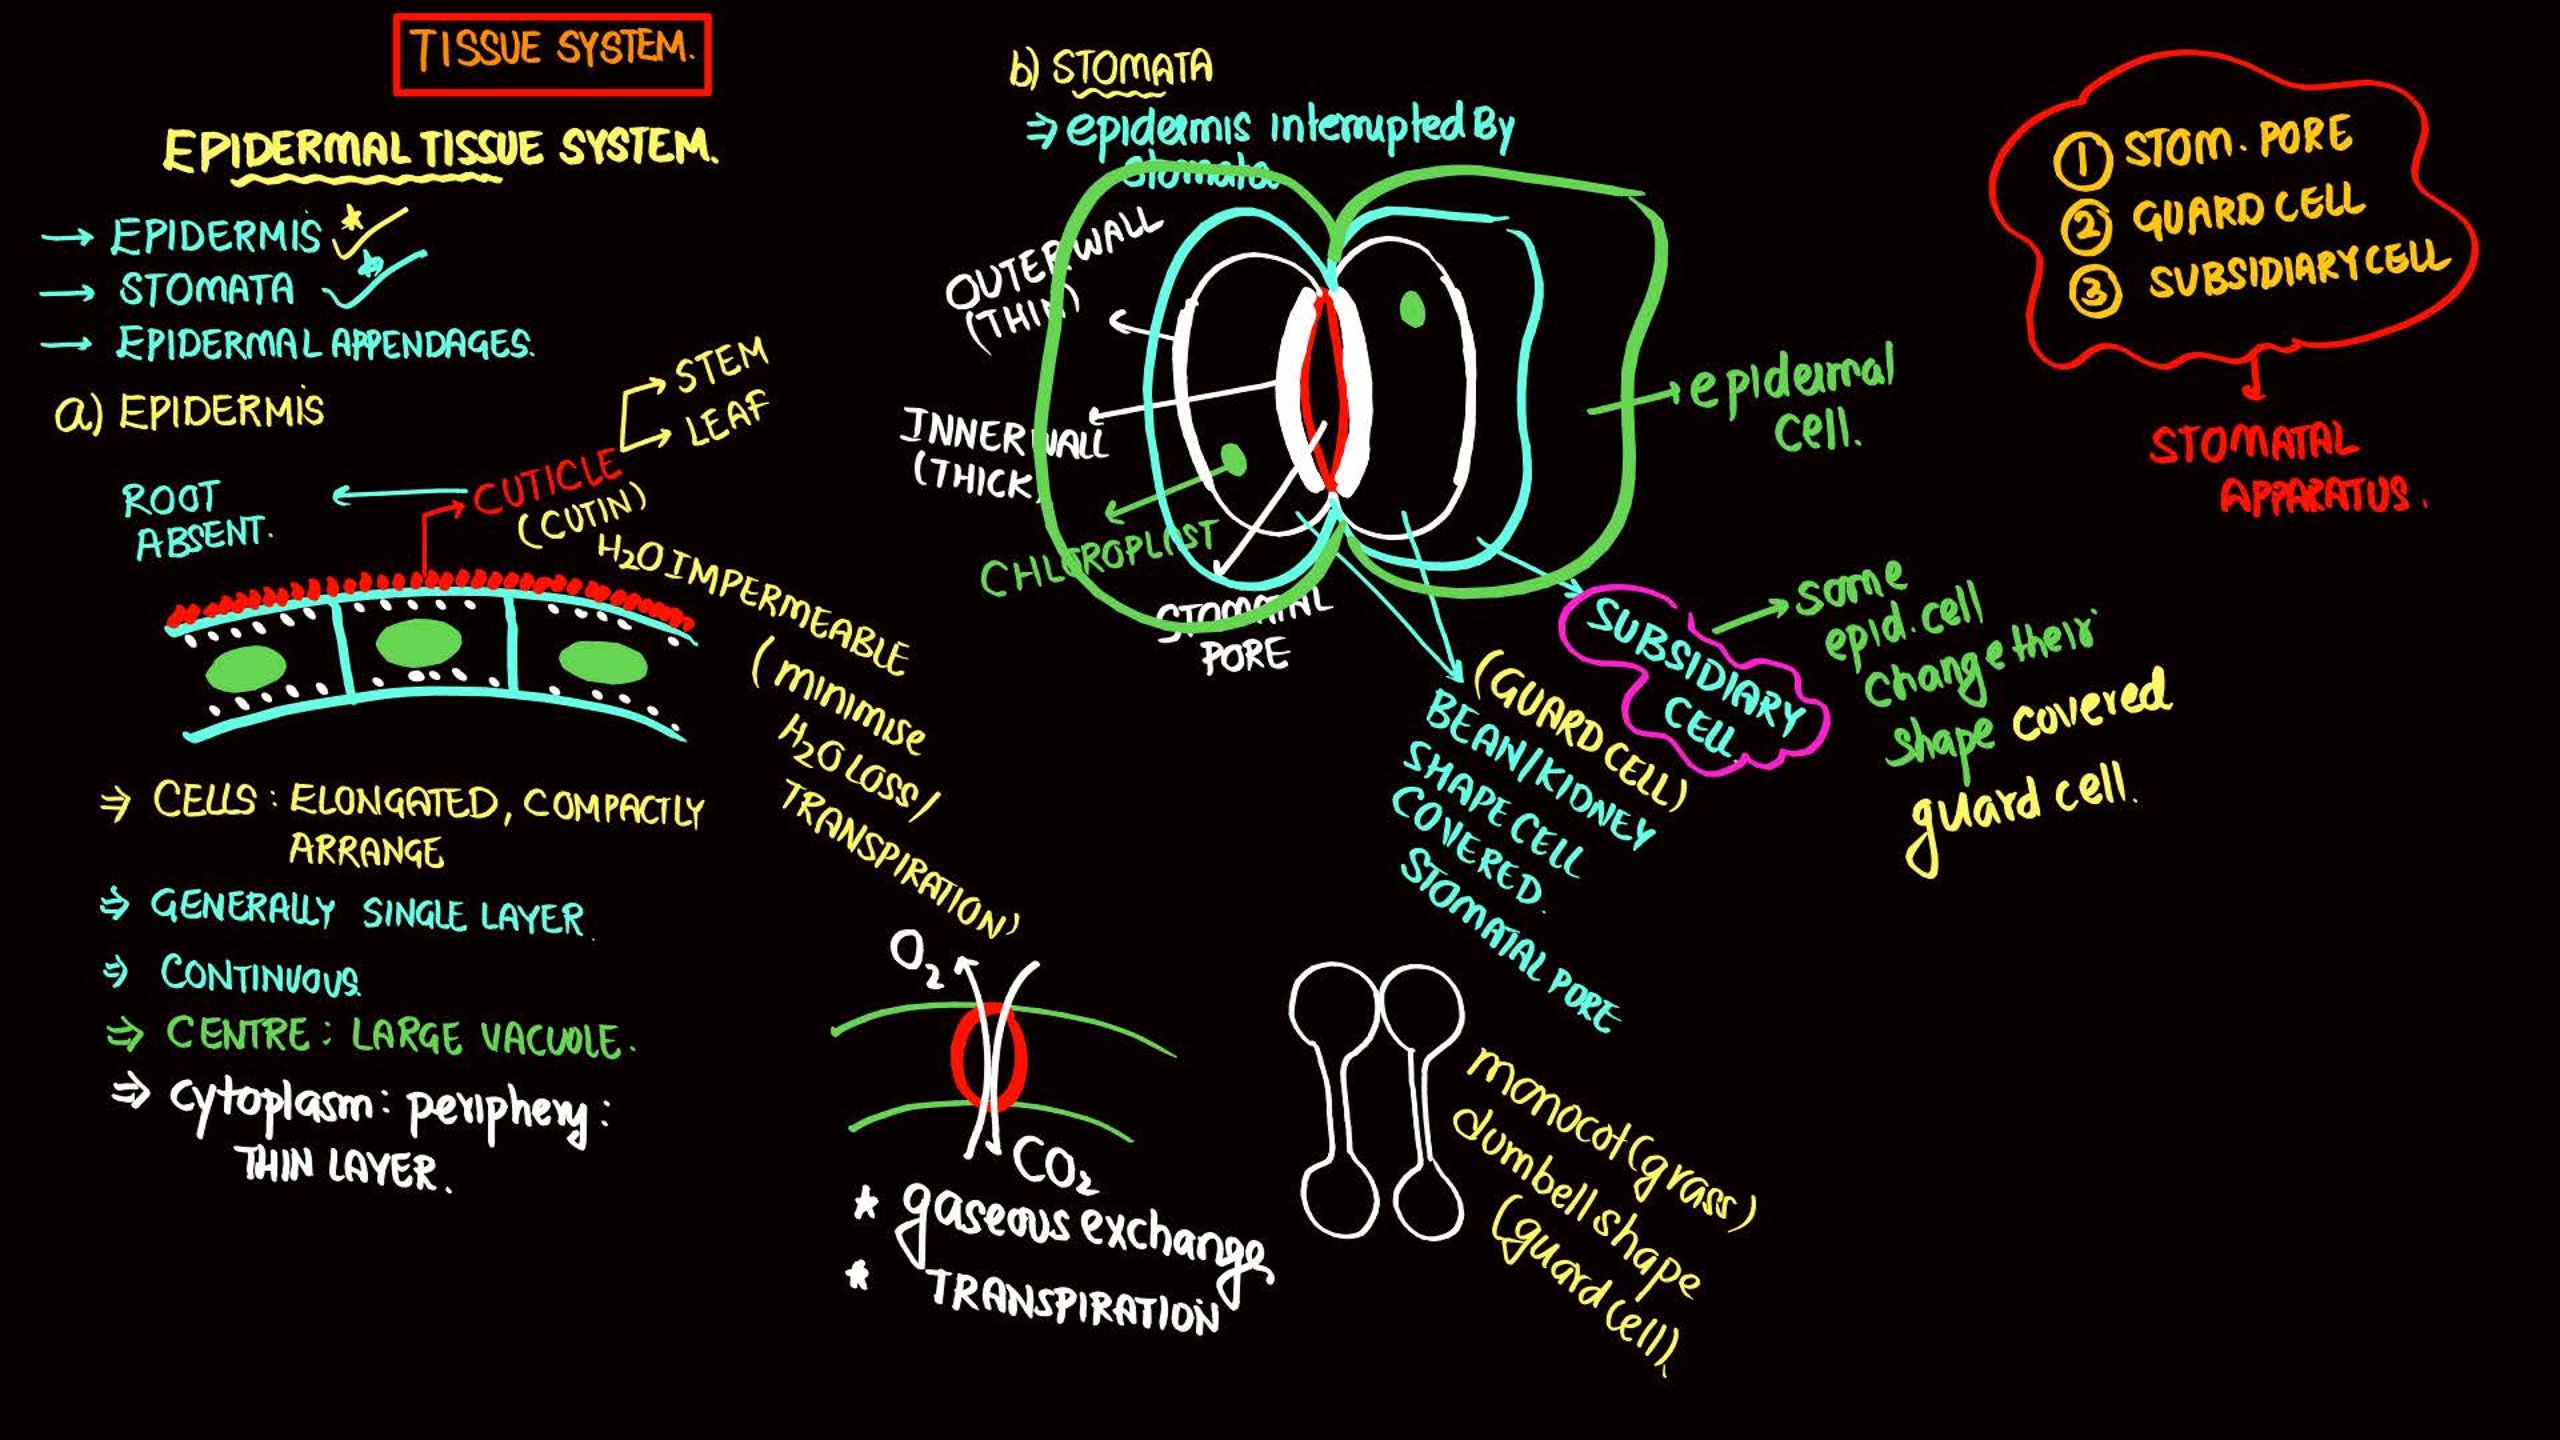 TISSUE SYSTEM.
EPIDERMAL TISSUE SYSTEM.
→ EPIDERMIS *
→ STOMATA *
→ EPIDERMAL APPENDAGES.
a) EPIDERMIS
STEM
LEAF
CUTICLE
(CUTIN)
ROOT
ABSENT.
H₂O IMPERMEABLE
(minimise
H₂O LOSS/
TRANSPIRATION)
⇒ CELLS : ELONGATED, COMPACTLY
ARRANGE
⇒ GENERALLY SINGLE LAYER.
⇒ CONTINUOUS.
⇒ CENTRE : LARGE VACUOLE.
⇒ cytoplasm : periphery :
THIN LAYER.
b) STOMATA
⇒ epidermis interrupted By
stomata
OUTER WALL
(THIN)
INNER WALL
(THICK)
CHLOROPLAST
STOMATAL
PORE
epidermal
cell.
SUBSIDIARY
CELL.
some
epid. cell
change their
shape covered
guard cell.
(GUARD CELL)
BEAN/KIDNEY
SHAPE CELL
COVERED.
STOMATAL PORE
O₂
CO₂
* gaseous exchange
* TRANSPIRATION
monocot (grass)
dumbell shape
(guard cell)
① STOM. PORE
② GUARD CELL
③ SUBSIDIARY CELL
STOMATAL
APPARATUS.